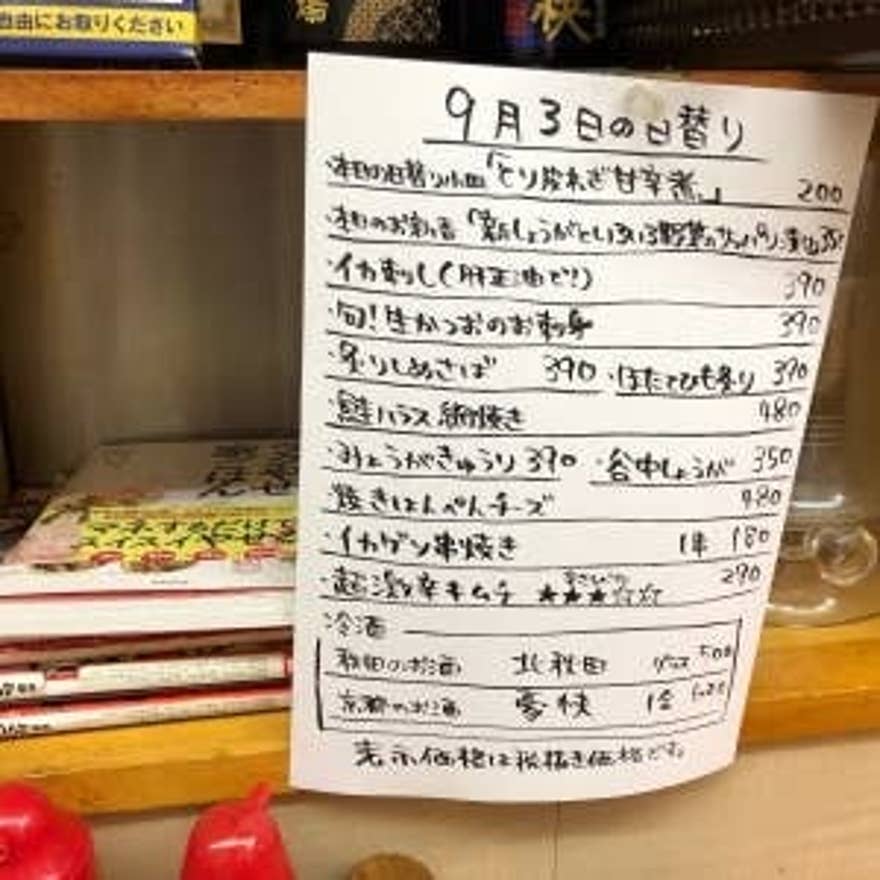 自由にお取りください
9月3日の日替り
・本日の日替り小皿「とり皮ねぎ甘辛煮」 200
・本日のお新香「新しょうがといろいろ野菜のサッパリ漬」 350
・イカ刺し(肝正油で!) 390
・旬!生かつおのお刺身 390
・炙りしめさば 390 ・ほたてひも炙り 390
・鮭ハラス網焼き 480
・みょうがきゅうり 390 ・谷中しょうが 350
・焼きはんぺんチーズ 480
・イカゲソ串焼き 1本 180
・超激辛キムチ ★★★☆☆ 290
冷酒
秋田のお酒 北秋田 グラス 500
京都のお酒 豪快 1合
表示価格は税抜き価格です。